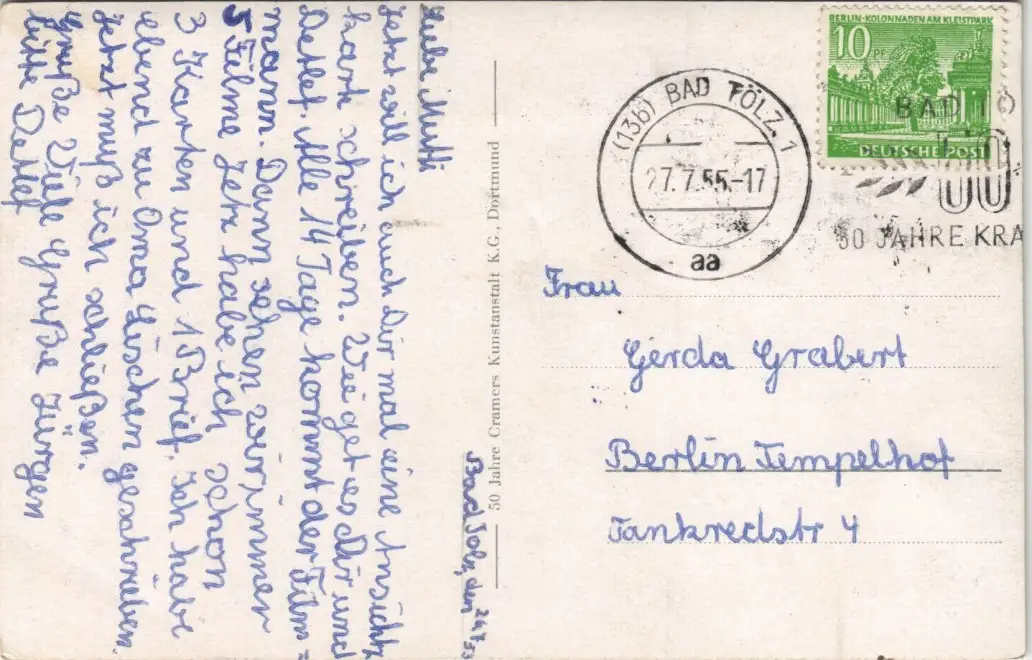 Bad Tölz, den 26.7.53
Liebe Mutti
Jetzt will ich auch Dir mal eine Ansichtz
karte schreiben. Wie get es Dir und
Detlef. Alle 14 Tage kommt der Film=
mann. Dann sehen wir immer
5 Filme. Jetz habe ich schon
3 Karten und 1 Brief. Ich habe
ebend zu Oma Lischen geschrieben.
Jetzt muß ich schließen.
Grüße Viele Grüße Jürgen
bitte Detlef
50 Jahre Cramers Kunstanstalt K.G., Dortmund
BERLIN-KOLONNADEN AM KLEISTPARK
10 PF
DEUTSCHE POST
(13b) BAD TÖLZ 1
27.7.55-17
aa
BAD TÖ
50 JAHRE KRA
Frau
Gerda Grabert
Berlin Tempelhof
Tankredstr 4